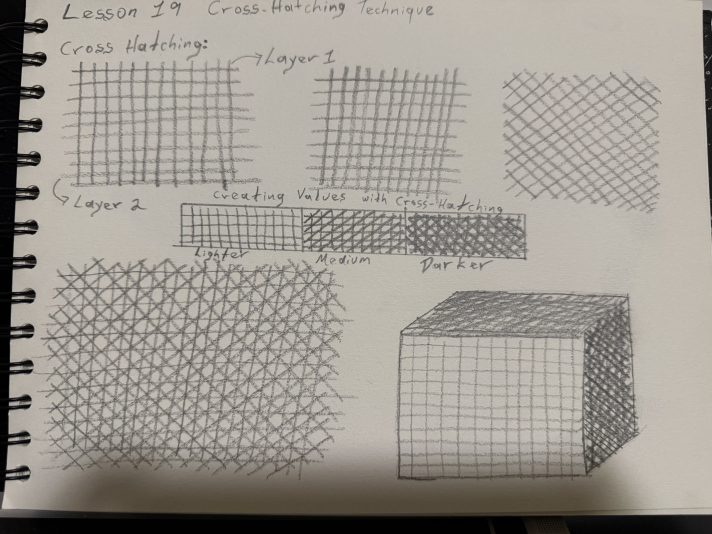 Lesson 19 Cross-Hatching Technique
Cross Hatching:
Layer 1
Layer 2
Creating Values with Cross-Hatching
Lighter
Medium
Darker